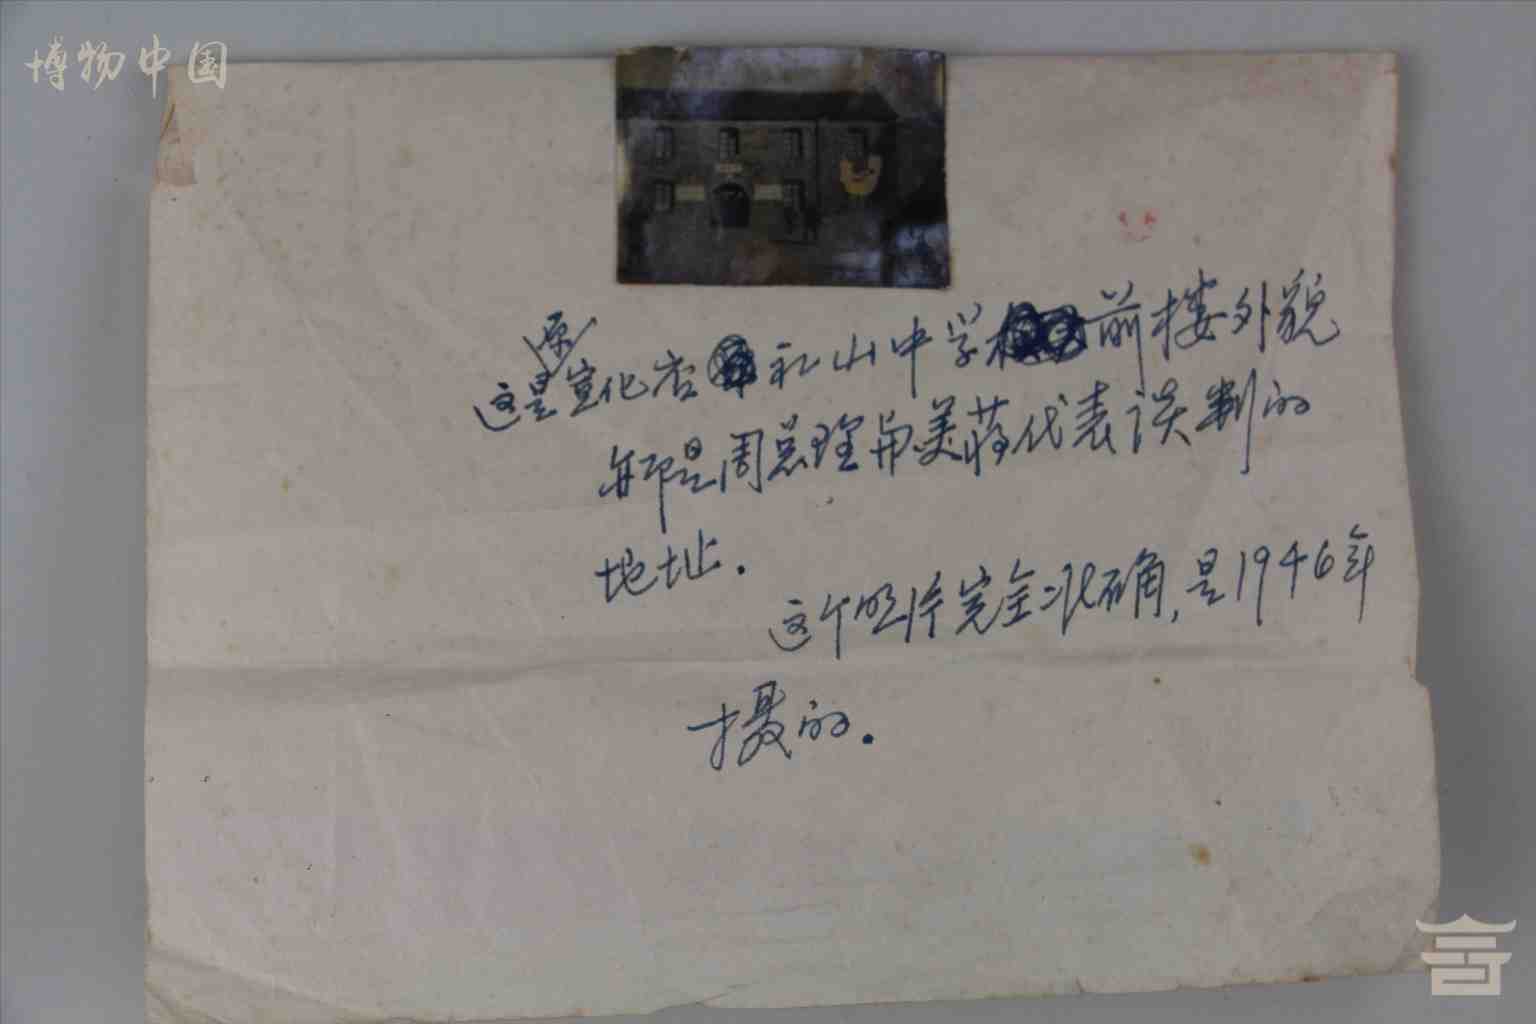 博物中国
这是原宣化店礼山中学前楼外貌
亦即是周总理与美蒋代表谈判的
地址.
这个照片完全准确,是1946年
摄的.